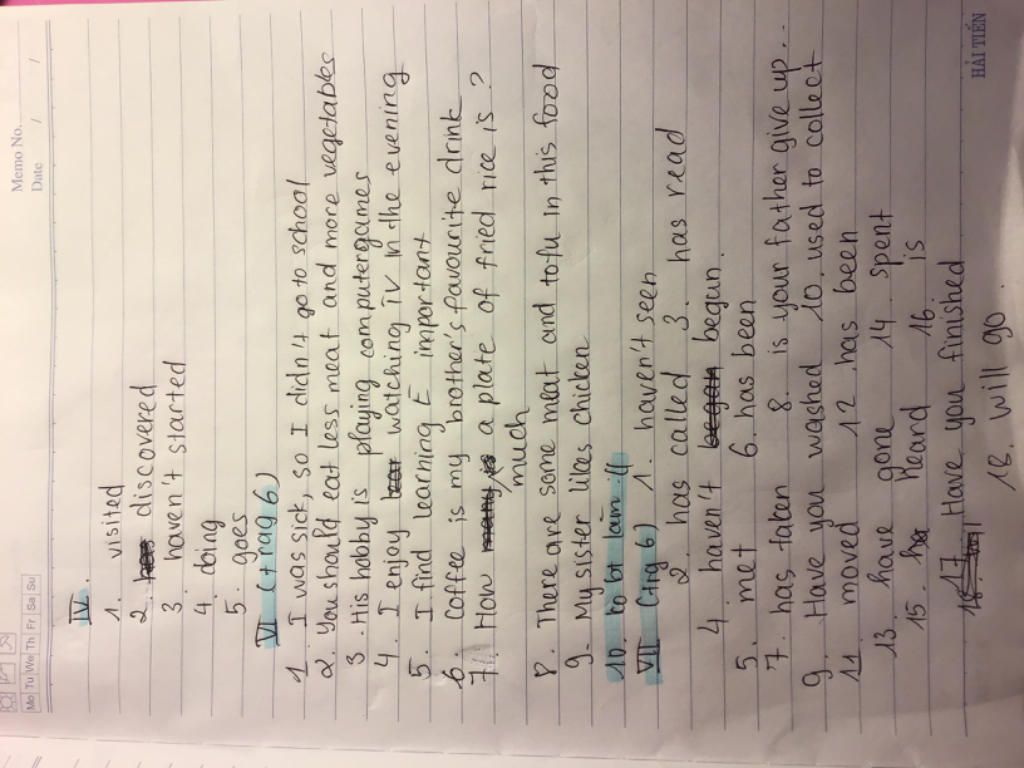 Memo No.
Date / /
Mo Tu We Th Fr Sa Su
IV.
1. visited
2. discovered
3 haven't started
4. doing
5. goes
VI (trag 6)
1. I was sick, so I didn't go to school
2. You should eat less meat and more vegetables
3. His hobby is playing computergames
4. I enjoy watching TV in the evening
5. I find learning E important
6. Coffee is my brother's favourite drink
7. How much a plate of fried rice is ?
8. There are some meat and tofu in this food
9. My sister likes chicken
10. to bt làm :((
VII (trg 6) 1. haven't seen
2. has called 3. has read
4 haven't begun.
5. met 6. has been
7. has taken 8. is your father give up...
9. Have you washed 10. used to collect
11. moved 12. has been
13. have gone 14. spent
15. heard 16. is
17 Have you finished
18. Will go.
HẢI TIẾN